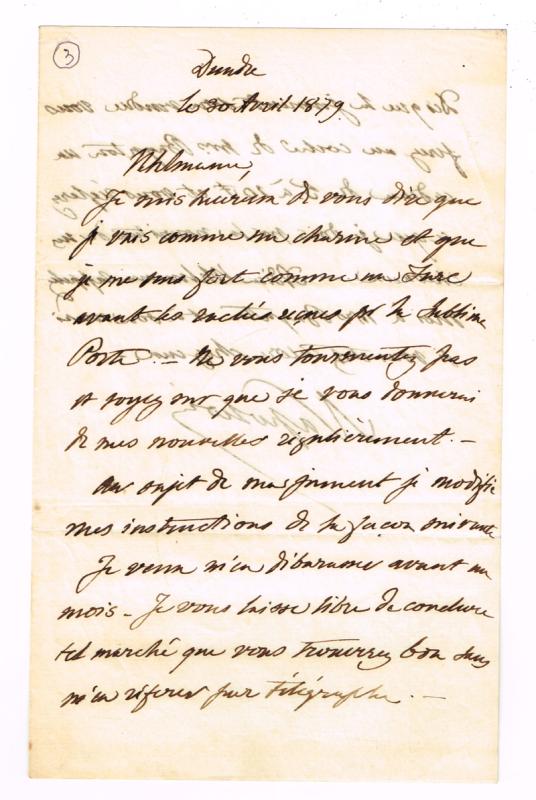 3
Dundee
le 30 Avril 1879.
Uhlmann,
Je suis heureux de vous dire que
je vais comme un charme et que
je me sens fort comme un Turc
avant les raclées reçues pr la Sublime
Porte. — Ne vous tourmentez pas
et soyez sur que je vous donnerai
de mes nouvelles régulièrement. —
Au sujet de ma jument je modifie
mes instructions de la façon suivante
Je veux m'en débarasser avant un
mois - Je vous laisse libre de conclure
tel marché que vous trouverez bon sans
m'en référer par télégraphe. —